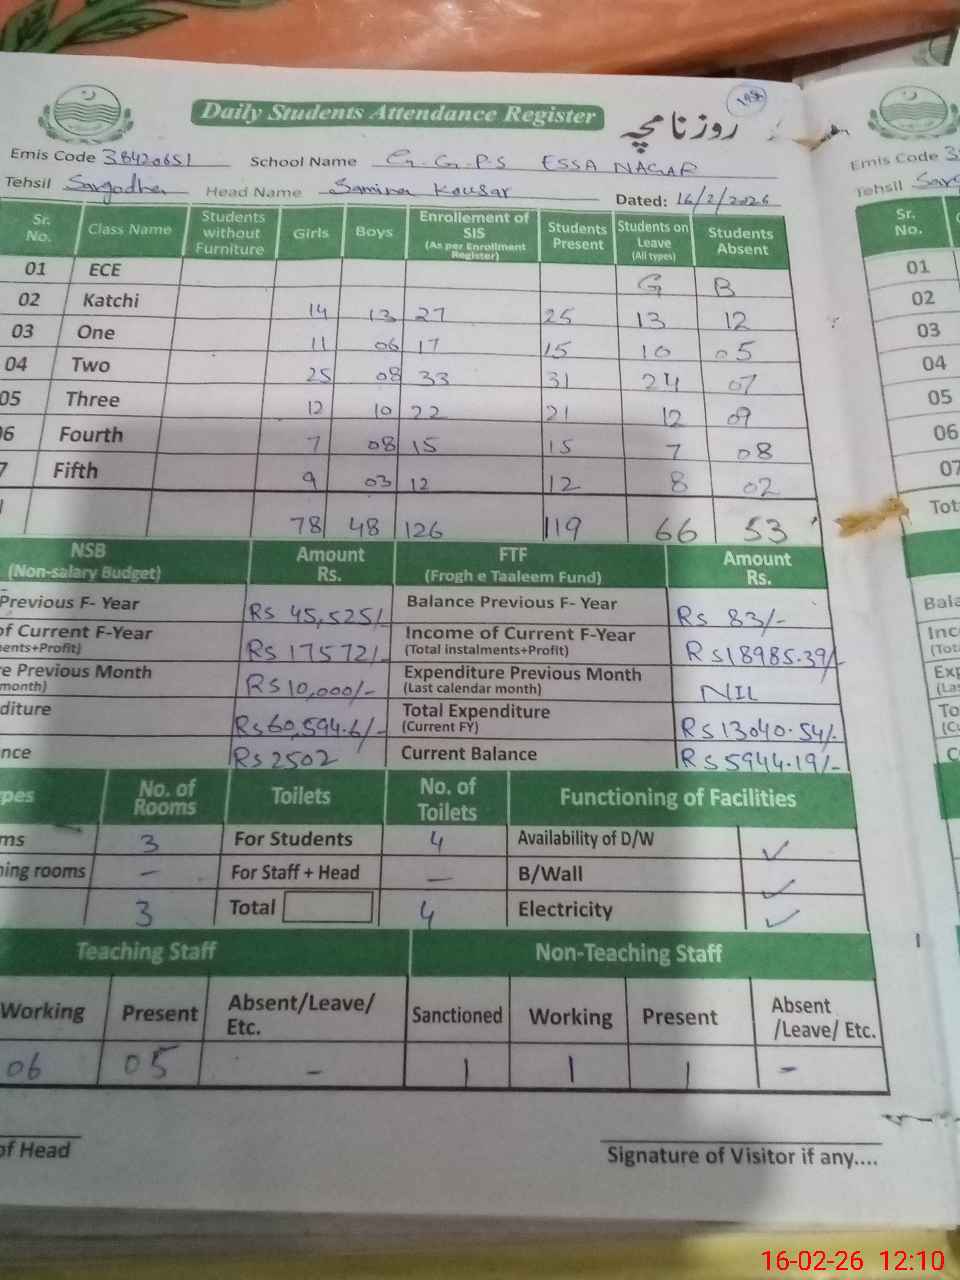 Daily Students Attendance Register روزنامچہ
Emis Code 38420651 School Name G.G.P.S ESSA NAGAR
Tehsil Sargodha Head Name Samina Kousar Dated: 16/2/2026
Sr. No. Class Name Students without Furniture Girls Boys Enrollement of SIS (As per Enrollment Register) Students Present Students on Leave (All types) Students Absent
01 ECE G B
02 Katchi 14 13 27 25 13 12
03 One 11 06 17 15 10 05
04 Two 25 08 33 31 24 07
05 Three 12 10 22 21 12 09
6 Fourth 7 08 15 15 7 08
7 Fifth 9 03 12 12 8 02
78 48 126 119 66 53
NSB (Non-salary Budget) Amount Rs. FTF (Frogh e Taaleem Fund) Amount Rs.
Previous F- Year Rs 45,525/- Balance Previous F- Year Rs 83/-
of Current F-Year (ments+Profit) Rs 17572/- Income of Current F-Year (Total instalments+Profit) Rs 18985.39/-
re Previous Month (month) Rs 10,000/- Expenditure Previous Month (Last calendar month) NIL
diture Rs 60,594.6/- Total Expenditure (Current FY) Rs 13040.54/-
nce Rs 2502 Current Balance Rs 5944.19/-
ypes No. of Rooms Toilets No. of Toilets Functioning of Facilities
ms 3 For Students 4 Availability of D/W ✓
ning rooms – For Staff + Head – B/Wall ✓
3 Total 4 Electricity ✓
Teaching Staff Non-Teaching Staff
Working Present Absent/Leave/ Etc. Sanctioned Working Present Absent /Leave/ Etc.
06 05 – 1 1 1 –
of Head Signature of Visitor if any....
Emis Code 3
Tehsil Sarg
Sr. No.
01
02
03
04
05
06
07
Tot
Bala
Inc
(Tot
Exp
(La
To
(Cu
C
16-02-26 12:10